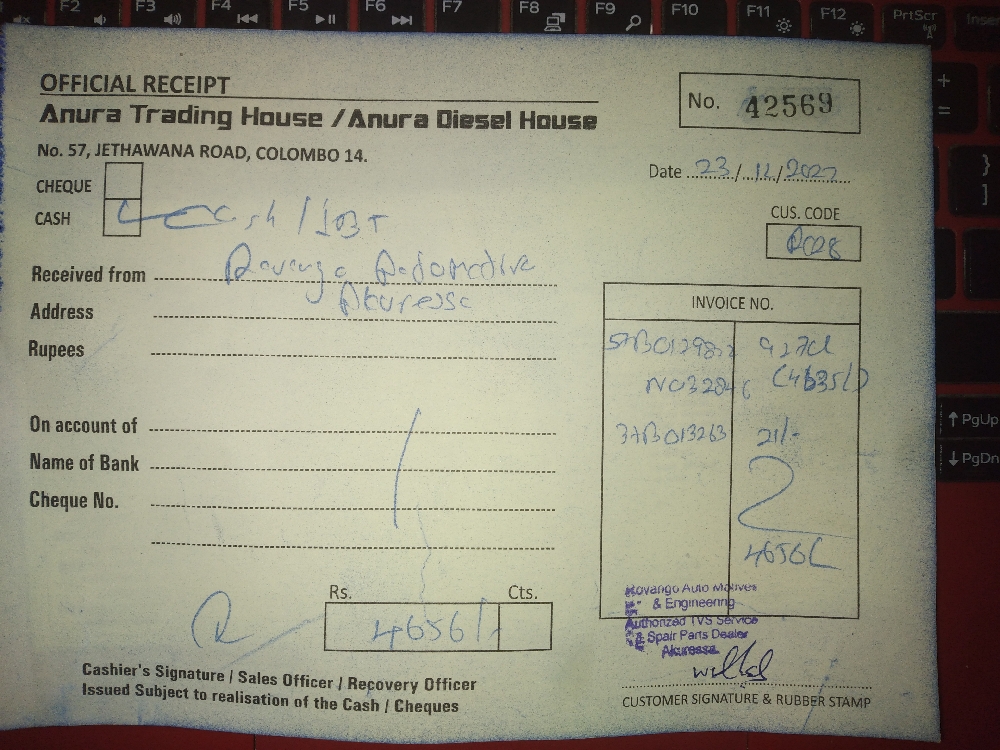 F2 F3 F4 F5 F6 F7 F8 F9 F10 F11 F12 PrtScr
OFFICIAL RECEIPT
Anura Trading House / Anura Diesel House
No. 57, JETHAWANA ROAD, COLOMBO 14.
No. 42569
Date 23/12/2022
CHEQUE
CASH Cash /
CUS. CODE
R028
Received from Rovango Automotive
Address Akuressa
Rupees
On account of
Name of Bank
Cheque No.
INVOICE NO.
9270/
(4635/)
37B013263 21/-
4656/
Rs. Cts.
4656/-
Rovango Auto Motives
& Engineering
Authorized TVS Service
& Spair Parts Dealer
Akuressa.
Cashier's Signature / Sales Officer / Recovery Officer
Issued Subject to realisation of the Cash / Cheques
CUSTOMER SIGNATURE & RUBBER STAMP
+
=
}
]
↑ PgUp
↓ PgDn